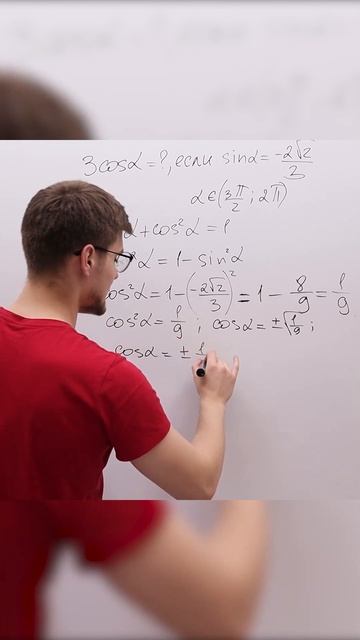 3cosα = ?, если sinα = -2√2/3
α∈(3π/2; 2π)
α + cos²α = 1
α = 1 - sin²α
cos²α = 1 - (-2√2/3)² = 1 - 8/9 = 1/9
cos²α = 1/9 ; cosα = ±√1/9 ;
cosα = ± 1